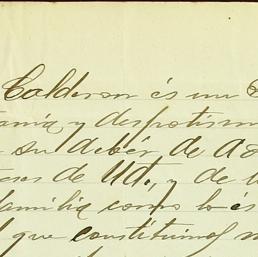 Calderon és un
tanía y despotism
su debér de a
de Ud., y de
familia como lo és
que constituimos